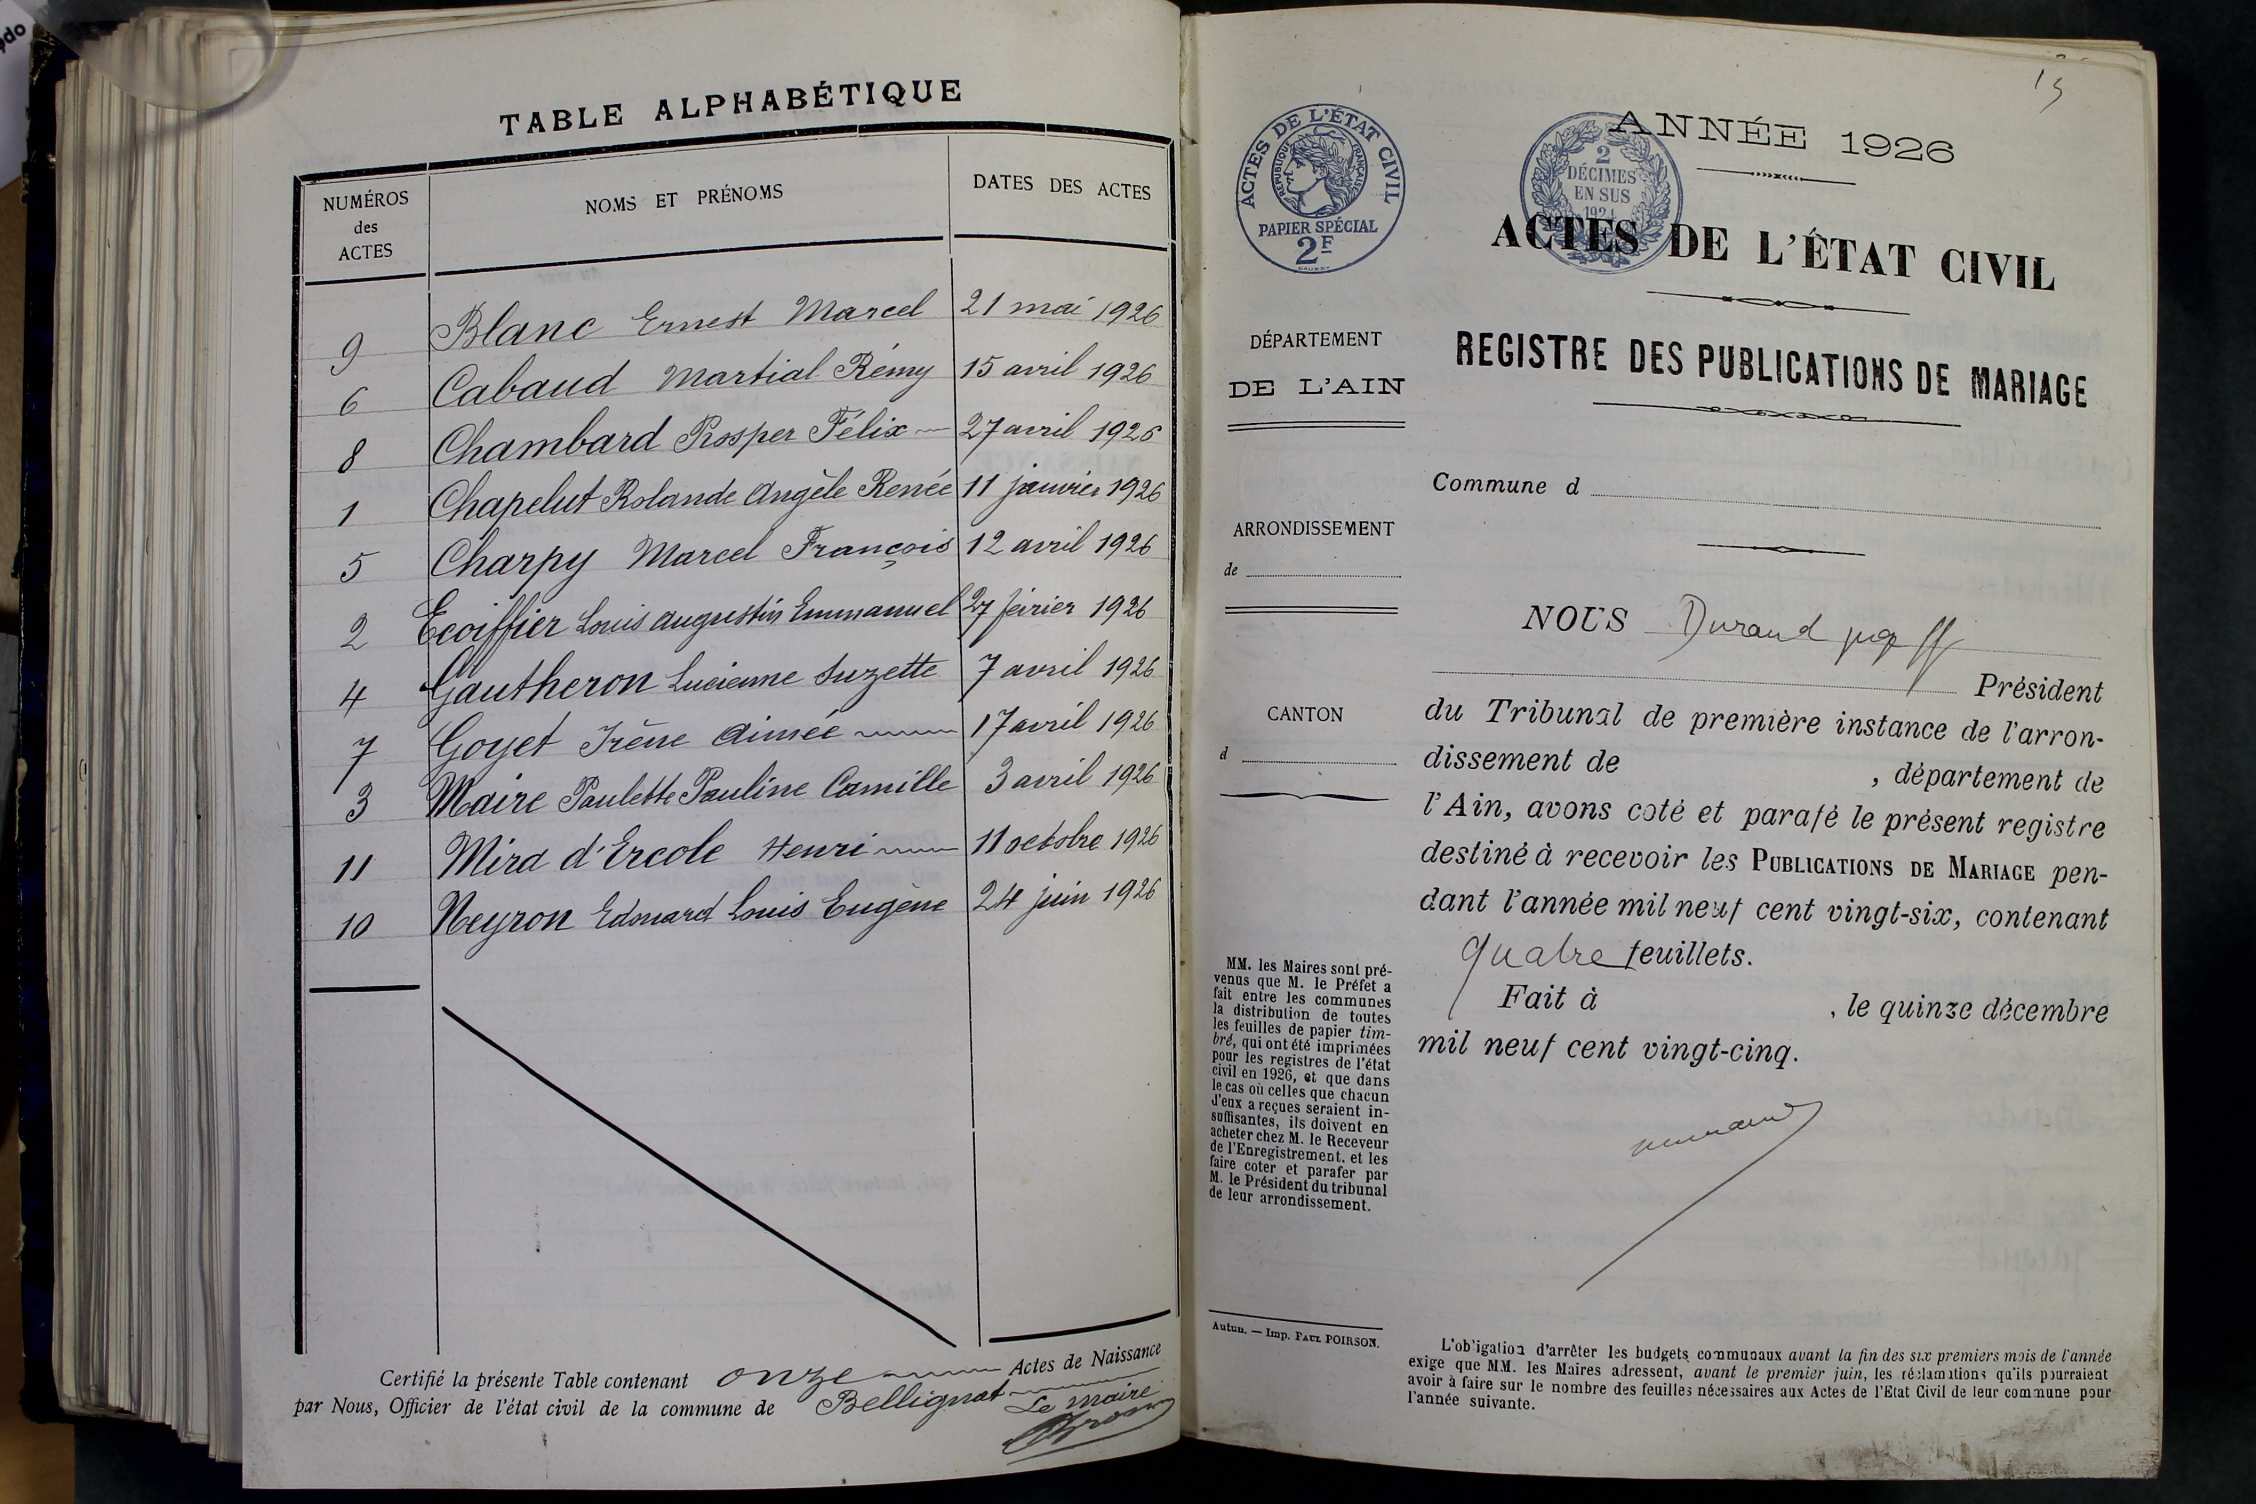 TABLE ALPHABÉTIQUE
NUMÉROS
des
ACTES
NOMS ET PRÉNOMS
DATES DES ACTES
9 Blanc Ernest Marcel 21 mai 1926
6 Cabaud Martial Rémy 15 avril 1926
8 Chambard Prosper Félix 27 avril 1926
1 Chapelut Rolande Angèle Renée 11 janvier 1926
5 Charpy Marcel François 12 avril 1926
2 Ecoiffier Louis Augustin Emmanuel 27 février 1926
4 Gautheron Lucienne Suzette 7 avril 1926
7 Goyet Irène Aimée 17 avril 1926
3 Maire Paulette Pauline Camille 3 avril 1926
11 Mira d'Ercole Henri 11 octobre 1926
10 Neyron Edouard Louis Eugène 24 juin 1926
Certifié la présente Table contenant onze Actes de Naissance
par Nous, Officier de l'état civil de la commune de Bellignat Le maire
ACTES DE L'ÉTAT CIVIL
RÉPUBLIQUE FRANÇAISE
PAPIER SPÉCIAL
2F
2
DÉCIMES
EN SUS
ANNÉE 1926
ACTES DE L'ÉTAT CIVIL
REGISTRE DES PUBLICATIONS DE MARIAGE
DÉPARTEMENT
DE L'AIN
ARRONDISSEMENT
de
CANTON
d
MM. les Maires sont pré-
venus que M. le Préfet a
fait entre les communes
la distribution de toutes
les feuilles de papier tim-
bré, qui ont été imprimées
pour les registres de l'état
civil en 1926, et que dans
le cas où celles que chacun
d'eux a reçues seraient in-
suffisantes, ils doivent en
acheter chez M. le Receveur
de l'Enregistrement, et les
faire coter et parafer par
M. le Président du tribunal
de leur arrondissement.
Autun. — Imp. PAUL POIRSON.
Commune d
NOUS Durand
Président
du Tribunal de première instance de l'arron-
dissement de , département de
l'Ain, avons coté et parafé le présent registre
destiné à recevoir les PUBLICATIONS DE MARIAGE pen-
dant l'année mil neuf cent vingt-six, contenant
quatre feuillets.
Fait à , le quinze décembre
mil neuf cent vingt-cinq.
L'obligation d'arrêter les budgets communaux avant la fin des six premiers mois de l'année
exige que MM. les Maires adressent, avant le premier juin, les réclamations qu'ils pourraient
avoir à faire sur le nombre des feuilles nécessaires aux Actes de l'Etat Civil de leur commune pour
l'année suivante.